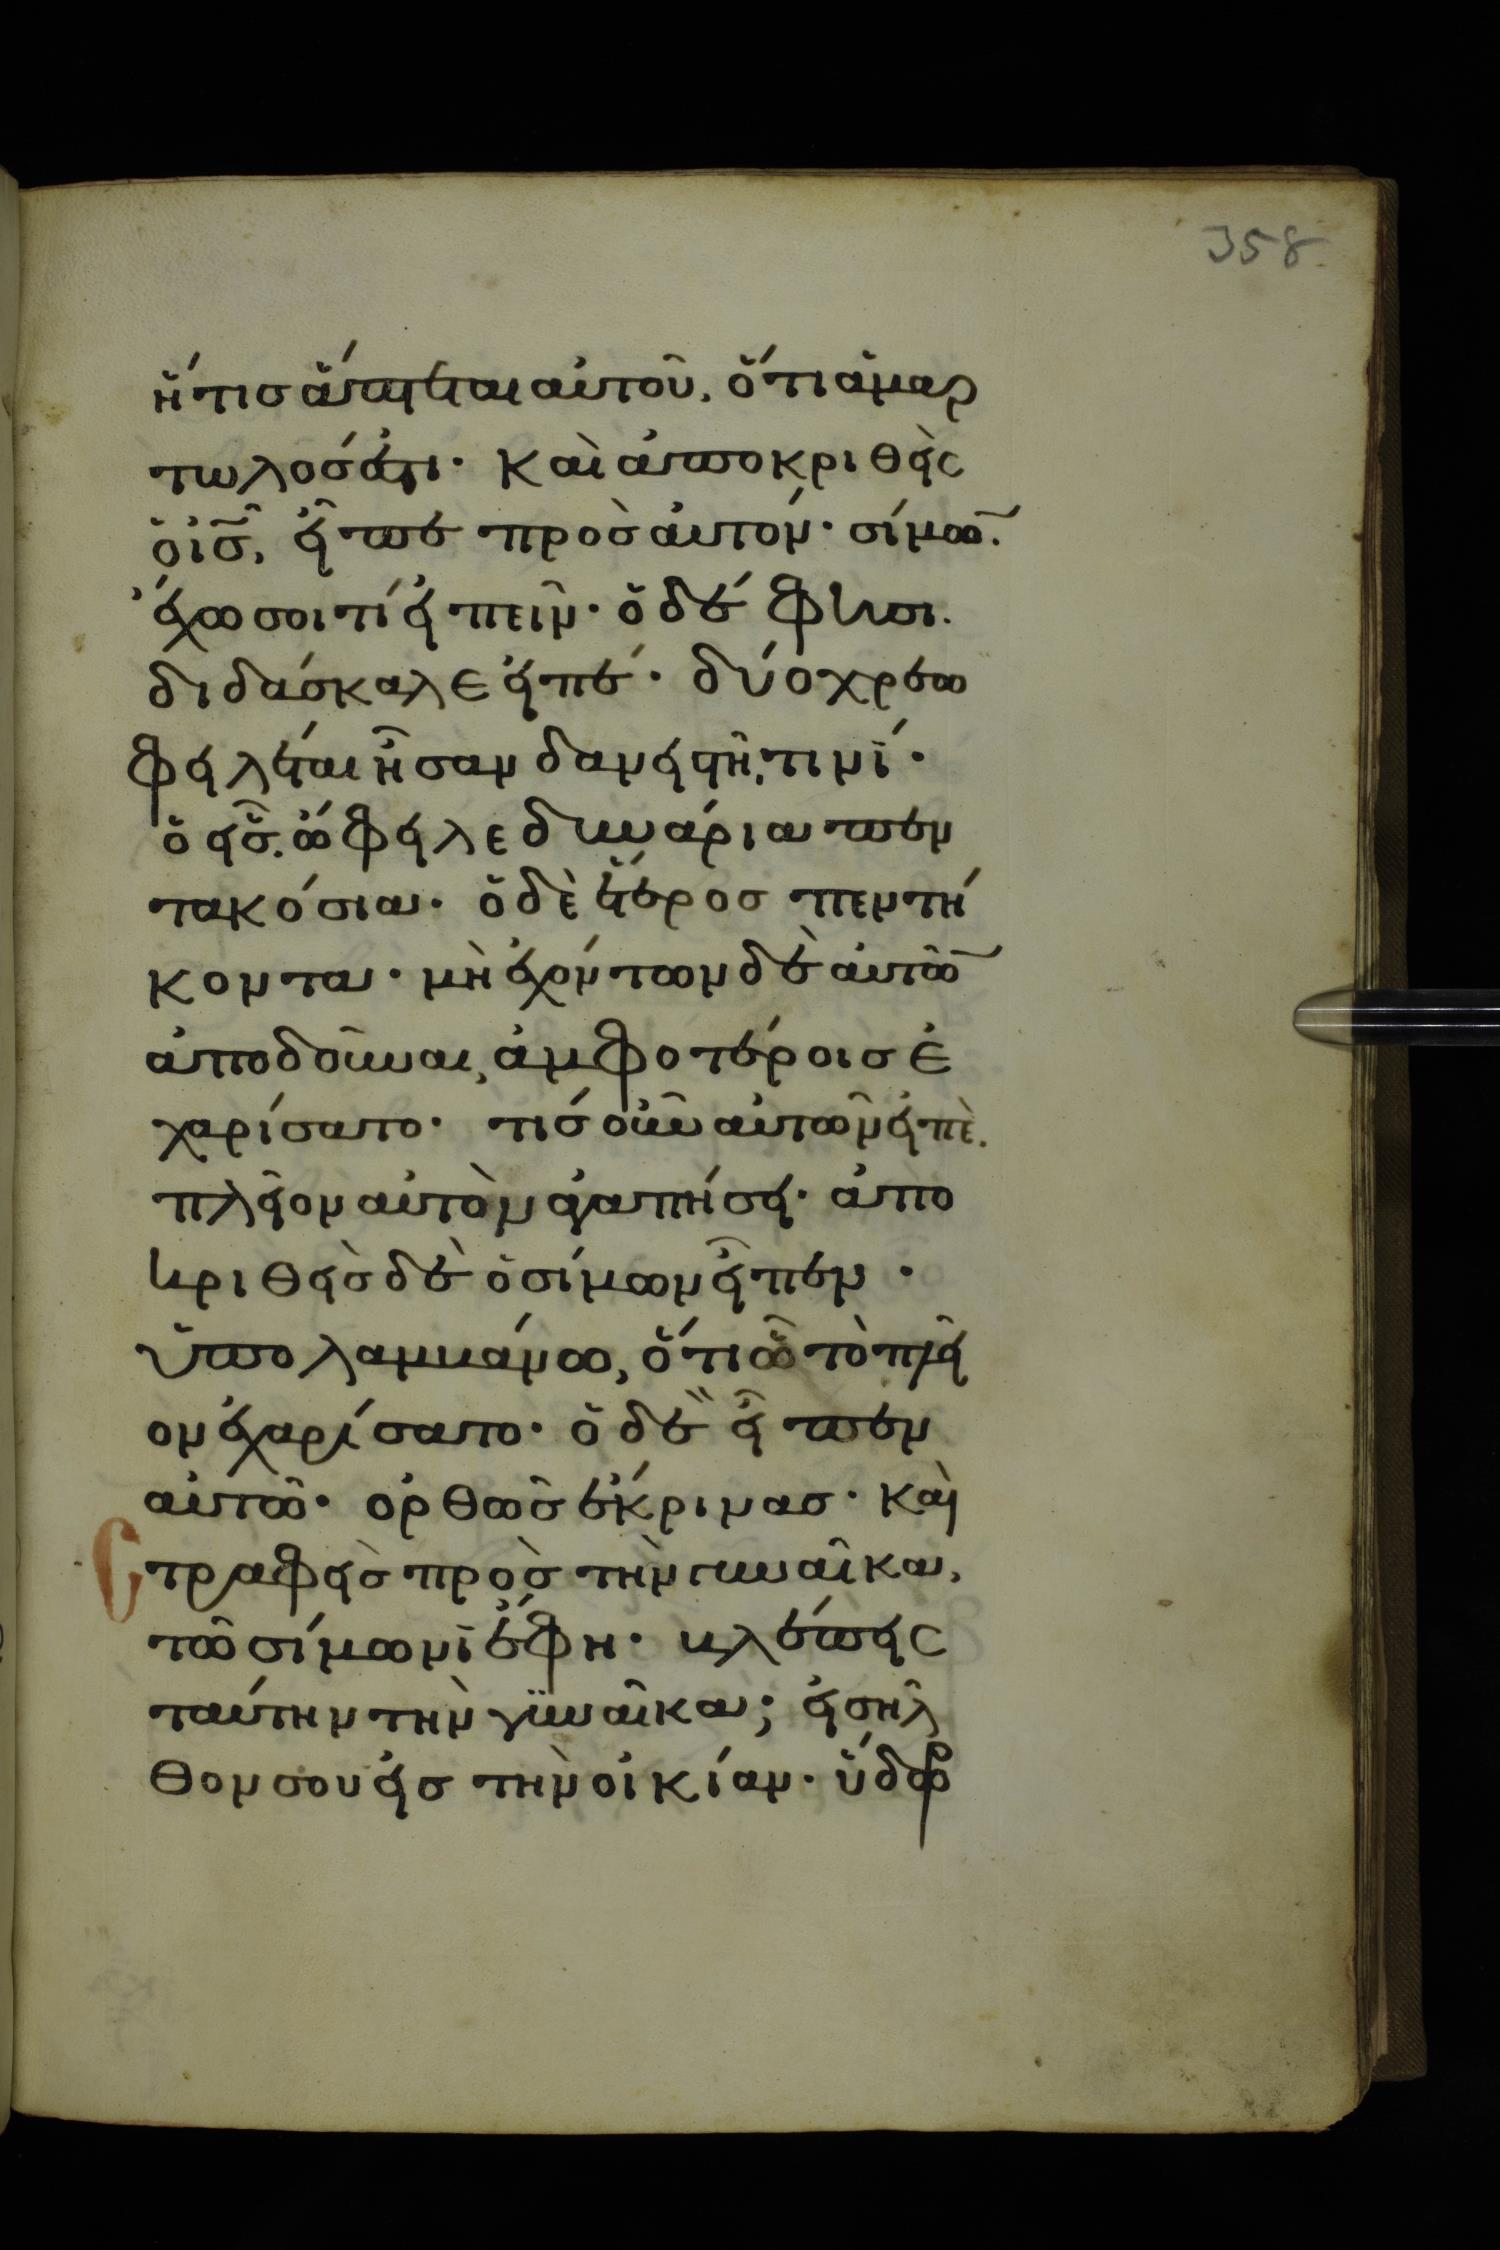 358
ἥτισ ἅπτεται αὐτοῦ, ὅτι ἁμαρ
τωλόσ ἐστι· Καὶ ἀποκριθεὶς
ὁ ἰ̅σ̅, εἶπε πρὸσ αὐτόν· σίμω̅.
ἔχω σοι τί εἰπεῖν· ὁ δέ φησι.
διδάσκαλε εἰπέ· δύο χρεω
φειλέται ἦσαν δανειστῆ τινί·
ὁ εἷσ ὤφειλε δηνάρια πεν
τακόσια· ὁ δὲ ἕτεροσ πεντή
κοντα· μὴ ἐχόντων δὲ αὐτῶ̅
ἀποδοῦναι, ἀμφοτέροισ ἐ
χαρίσατο· τίσ οὖν αὐτῶν εἰπὲ.
πλεῖον αὐτὸν ἀγαπήσει· ἀπο
κριθεὶσ δὲ ὁ σίμων εἶπεν·
ὑπολαμβάνω, ὅτι ᾧ τὸ πλεῖ
ον ἐχαρίσατο· ὁ δὲ εἶπεν
αὐτῶ· ὀρθῶσ ἔκρινασ· καὶ
Στραφεὶσ πρὸσ τὴν γυναῖκα,
τῶ σίμωνι ἔφη· βλέπεις
ταύτην τὴν γϋναῖκα; εἰσῆλ
θον σου εἰσ τὴν οἰκίαν· ὕδωρ